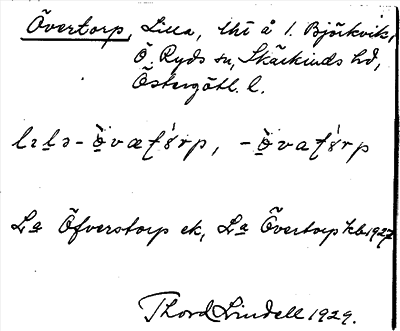 Övertorp, Lilla, thi å 1. Björkvik,
Ö. Ryds sn, Skärkinds hd,
Östergötl. l.
La Öfverstorp ek, La Övertorp kb 1927
Thord Lindell 1929.